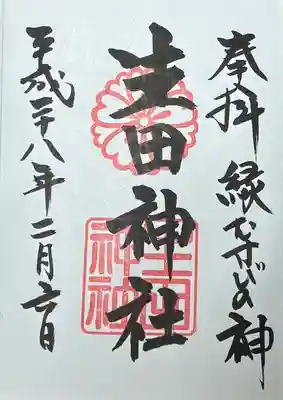 奉拝 縁むすびの神
生田神社
平成二十八年二月六日
生田神社